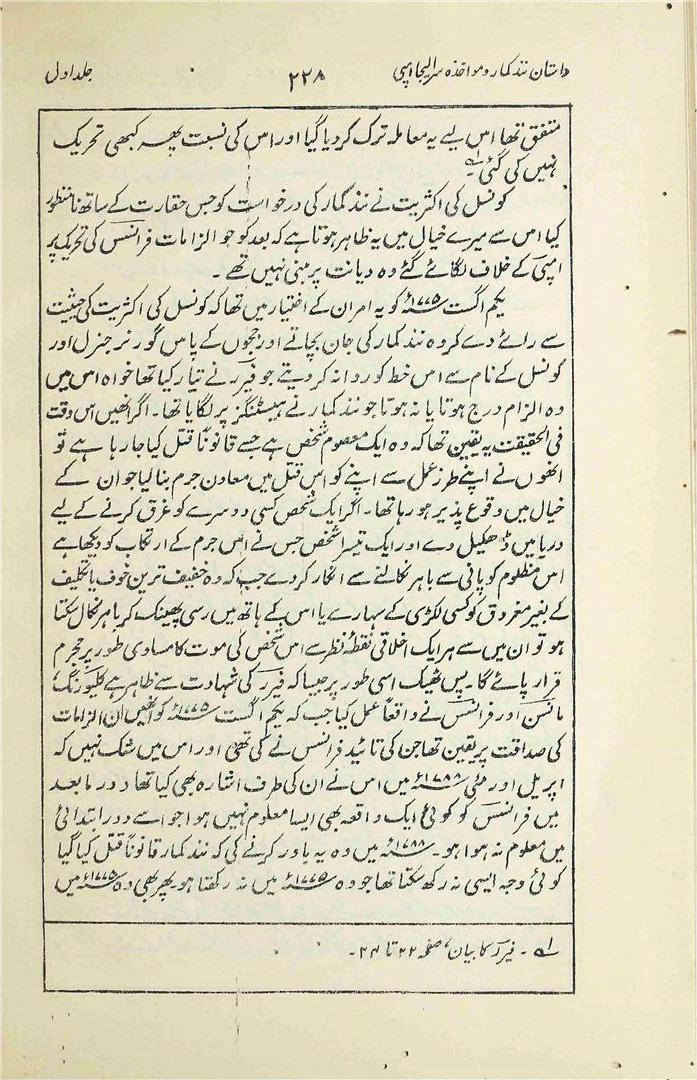 داستان نند کمار و مواخذہ سر الیجا امپی ۲۲۸ جلد اول
متفق تھا اس لیے یہ معاملہ ترک کر دیا گیا اور اس کی نسبت پھر کبھی تحریک
نہیں کی گئی۔ ۱؎
کونسل کی اکثریت نے نند کمار کی درخواست کو جس حقارت کے ساتھ نامنظور
کیا اس سے میرے خیال میں یہ ظاہر ہوتا ہے کہ بعد کو جو الزامات فرانسس کی تحریک پر
امپی کے خلاف لگائے گئے وہ دیانت پر مبنی نہیں تھے۔
یکم اگست ۱۷۷۵ء کو یہ امران کے اختیار میں تھا کہ کونسل کی اکثریت کی حیثیت
سے رائے دے کر وہ نند کمار کی جان بچاتے اور ججوں کے پاس گورنر جنرل اور
کونسل کے نام سے اس خط کو روانہ کر دیتے جو فیرر نے تیار کیا تھا خواہ اس میں
وہ الزام درج ہوتا یا نہ ہوتا جو نند کمار نے ہیسٹنگز پر لگایا تھا۔ اگر انھیں اس وقت
فی الحقیقت یہ یقین تھا کہ وہ ایک معصوم شخص ہے جسے قانوناً قتل کیا جا رہا ہے تو
انھوں نے اپنے طرز عمل سے اپنے کو اس قتل میں معاون جرم بنا لیا جو ان کے
خیال میں وقوع پذیر ہو رہا تھا۔ اگر ایک شخص کسی دوسرے کو غرق کرنے کے لیے
دریا میں ڈھکیل دے اور ایک تیسرا شخص جس نے اس جرم کے ارتکاب کو دیکھا ہے
اس مظلوم کو پانی سے باہر نکالنے سے انکار کر دے جب کہ وہ خفیف ترین خوف یا تکلیف
کے بغیر مغروق کو کسی لکڑی کے سہارے یا اس کے ہاتھ میں رسی پھینک کر باہر نکال سکتا
ہو تو ان میں سے ہر ایک اخلاقی نقطۂ نظر سے اس شخص کی موت کا مساوی طور پر مجرم
قرار پائے گا۔ پس ٹھیک اسی طور پر جیسا کہ فیرر کی شہادت سے ظاہر ہے کلیورنگ،
مانسن اور فرانسس نے واقعاً عمل کیا جب کہ یکم اگست ۱۷۷۵ء کو انھیں ان الزامات
کی صداقت پر یقین تھا جن کی تائید فرانسس نے کی تھی اور اس میں شک نہیں کہ
اپریل اور مئی ۱۷۸۸ء میں اس نے ان کی طرف اشارہ بھی کیا تھا دور مابعد
میں فرانسس کو کوئی ایک واقعہ بھی ایسا معلوم نہیں ہوا جو اسے دور ابتدائی
میں معلوم نہ ہوا ہو۔ ۱۷۸۸ء میں وہ یہ باور کرنے کی کہ نند کمار قانوناً قتل کیا گیا
کوئی وجہ ایسی نہ رکھ سکتا تھا جو وہ ۱۷۷۵ء میں نہ رکھتا ہو۔ پھر بھی وہ ۱۷۷۵ء میں
۱؎۔ فیرر کا بیان، صفحہ ۲۲ تا ۳۴۔